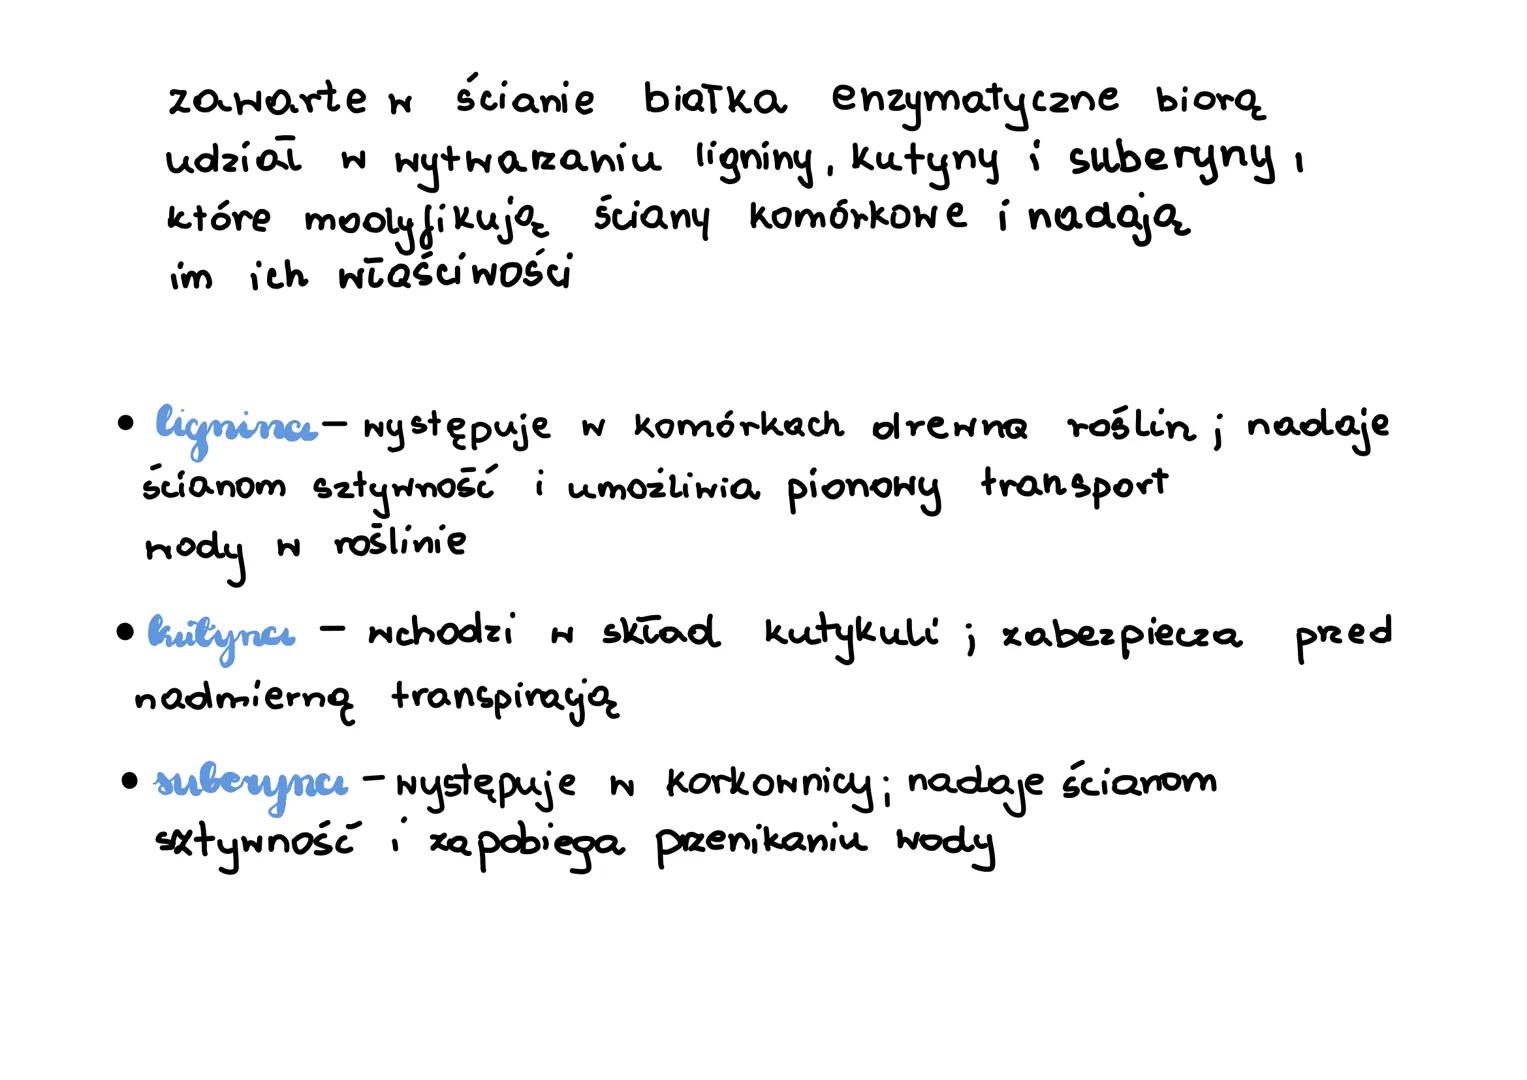 zawarte w ścianie białka enzymatyczne biorą
udział w wytwarzaniu ligniny, kutyny i suberyny,
które modyfikują ściany komórkowe i nadają
im ich właściwości
• lignina – występuje w komórkach drewna roślin ; nadaje
ścianom sztywność i umożliwia pionowy transport
wody w roślinie
• kutyna – wchodzi w skład kutykuli ; zabezpiecza przed
nadmierną transpiracją
• suberyna – występuje w korkownicy ; nadaje ścianom
sztywność i zapobiega przenikaniu wody